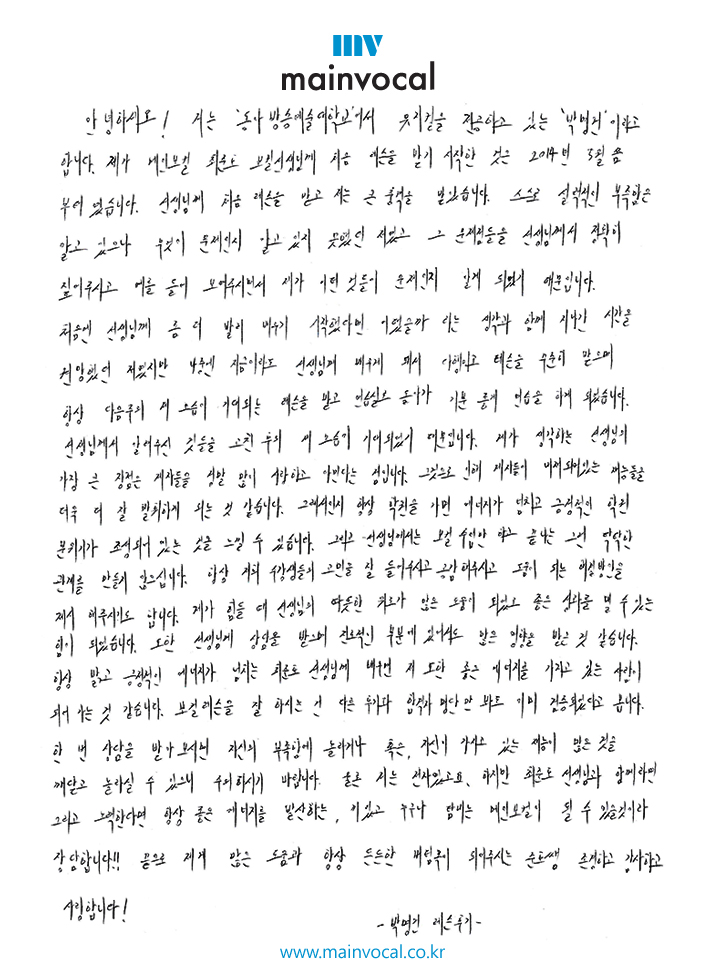 mv
mainvocal
안녕하세요! 저는 '동아방송예술대학교'에서 뮤지컬을 전공하고 있는 '박영건'이라고
합니다. 제가 메인보컬 최운토 보컬선생님께 처음 레슨을 받기 시작한 것은 2014년 3월 쯤
부터 였습니다. 선생님께 처음 레슨을 받고 저는 큰 충격을 받았습니다. 스스로 실력적인 부족함은
알고 있으나 무엇이 문제인지 알고 있지 못했던 저였고 그 문제점들을 선생님께서 정확히
짚어주시고 예를 들어 보여주시면서 제가 어떤 것들이 문제인지 알게 되었기 때문입니다.
처음엔 선생님께 좀 더 빨리 배우기 시작했다면 어땠을까 라는 생각과 함께 지나간 시간을
원망했던 저였지만 나중엔 지금이라도 선생님께 배우게 돼서 다행이고 레슨을 꾸준히 받으며
항상 다음주의 내 모습이 기대되는 레슨을 받고 연습실로 돌아가 기분 좋게 연습을 하게 되었습니다.
선생님께서 알려주신 것들을 고친 후의 내 모습이 기대되었기 때문입니다. 제가 생각하는 선생님의
가장 큰 장점은 제자들을 정말 많이 사랑하고 아낀다는 점입니다. 그것으로 인해 제자들이 내재되어있는 재능들을
더욱 더 잘 발휘하게 되는 것 같습니다. 그래서인지 항상 학원을 가면 에너지가 넘치고 긍정적인 학원
분위기가 조성되어 있는 것을 느낄 수 있습니다. 그리고 선생님께서는 보컬 수업만 하고 끝나는 그런 딱딱한
관계를 만들지 않으십니다. 항상 저희 수강생들의 고민을 잘 들어주시고 공감해주시고 도움이 되는 해결방안을
제시 해주시기도 합니다. 제가 힘들 때 선생님의 따뜻한 위로가 많은 도움이 되었고 좋은 성과를 낼 수 있는
힘이 되었습니다. 또한 선생님께 상담을 받으며 진로적인 부분에 있어서도 많은 영향을 받은 것 같습니다.
항상 밝고 긍정적인 에너지가 넘치는 최운토 선생님께 배우면 저 또한 좋은 에너지를 가지고 있는 사람이
되어 가는 것 같습니다. 보컬레슨을 잘 하시는 건 다른 누가봐도 합격자 명단만 봐도 이미 검증되었다고 봅니다.
한 번 상담을 받아 보시면 자신의 부족함에 놀라거나 혹은, 자신이 가지고 있는 재능이 많은 것을
깨닫고 놀라실 수 있으니 주의하시기 바랍니다. 물론 저는 전자였고요. 하지만 최운토 선생님과 함께라면
그리고 노력한다면 항상 좋은 에너지를 발산하는, 멋있고 누구나 탐내는 메인보컬이 될 수 있을것이라
장담합니다!! 끝으로 제게 많은 도움과 항상 든든한 버팀목이 되어주시는 운토쌤 존경하고 감사하고
사랑합니다!
-박영건 레슨후기-
www.mainvocal.co.kr